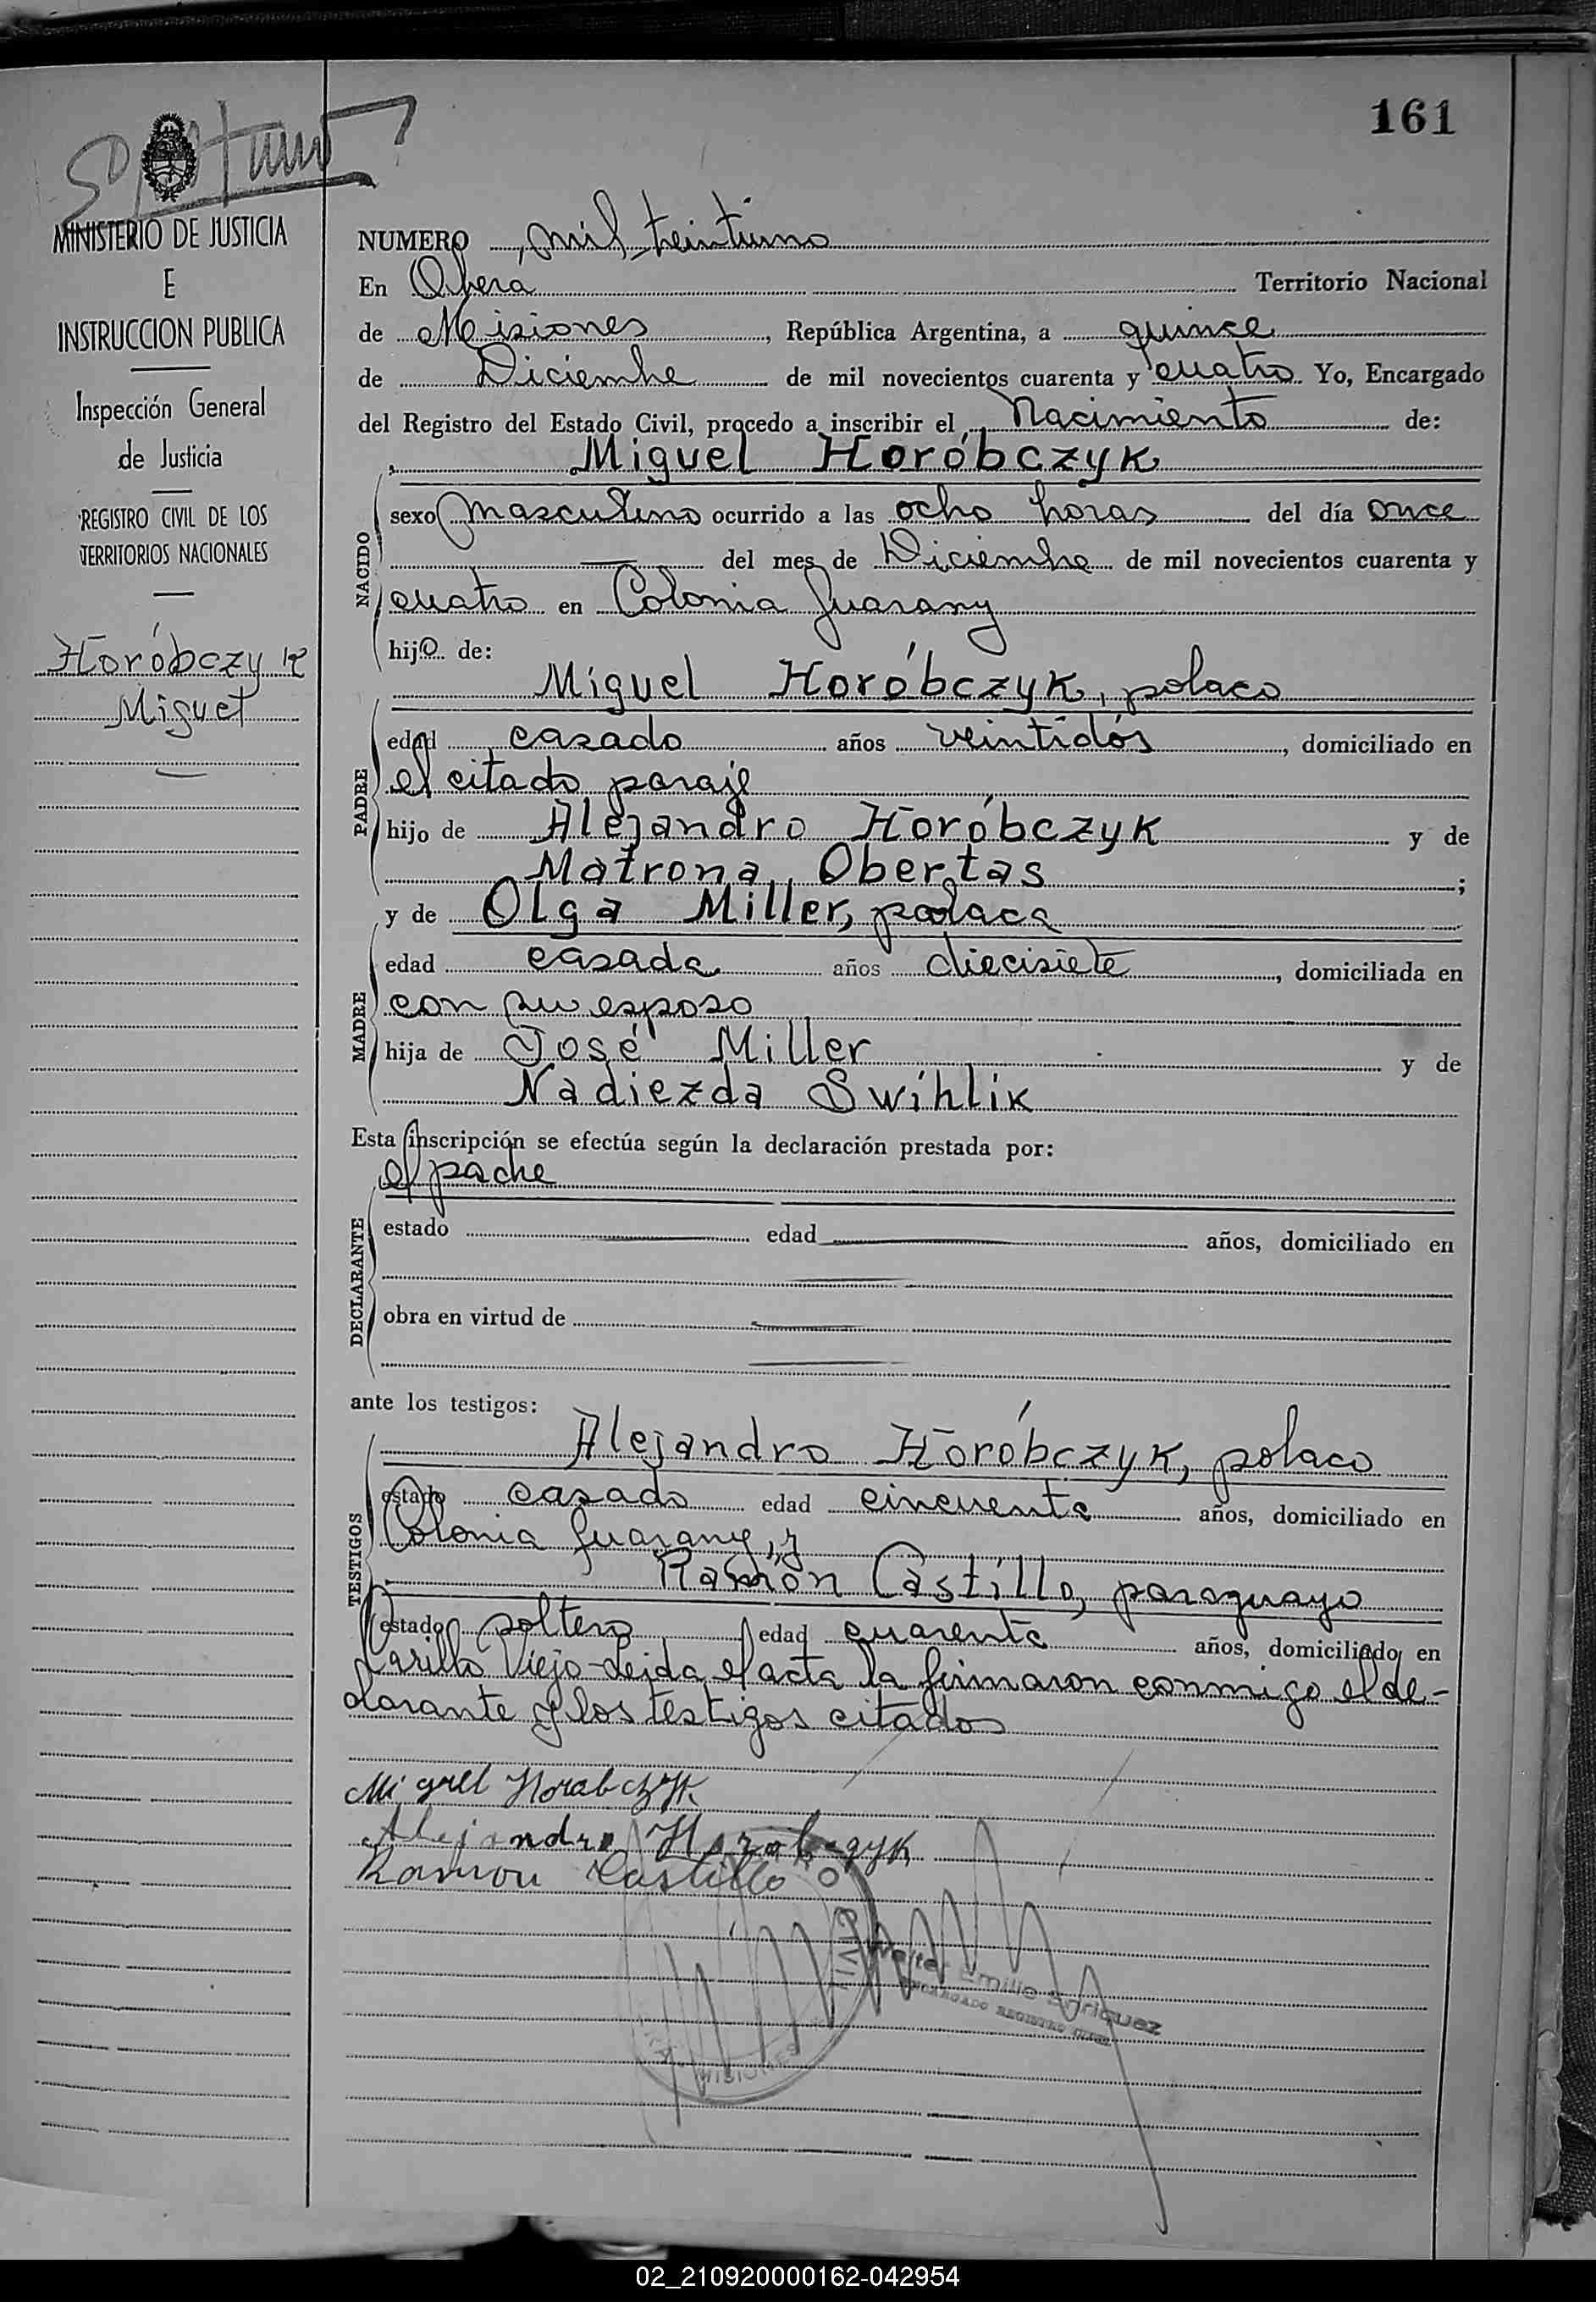 161
MINISTERIO DE JUSTICIA
E
INSTRUCCION PUBLICA
Inspección General
de Justicia
REGISTRO CIVIL DE LOS
TERRITORIOS NACIONALES
Horóbczyk
Miguel
NUMERO mil treintiuno
En Obera Territorio Nacional
de Misiones, República Argentina, a quince
de Diciembre de mil novecientos cuarenta y cuatro Yo, Encargado
del Registro del Estado Civil, procedo a inscribir el Nacimiento de:
Miguel Horóbczyk
NACIDO
sexo masculino ocurrido a las ocho horas del día once
del mes de Diciembre de mil novecientos cuarenta y
cuatro en Colonia Guarany
hijo de:
Miguel Horóbczyk, polaco
PADRE
edad casado años veintidós, domiciliado en
el citado paraje
hijo de Alejandro Horóbczyk y de
Matrona Obertas;
y de Olga Miller, polaca
MADRE
edad casada años diecisiete, domiciliada en
con su esposo
hija de José Miller y de
Nadiezda Swihlik
Esta inscripción se efectúa según la declaración prestada por:
el padre
DECLARANTE
estado edad años, domiciliado en
obra en virtud de
ante los testigos:
TESTIGOS
Alejandro Horóbczyk, polaco
estado casado edad cincuenta años, domiciliado en
Colonia Guarany, y
Ramón Castillo, paraguayo
estado soltero edad cuarenta años, domiciliado en
Viejo-Leida el acta la firmaron conmigo el de-
clarante y los testigos citados
Miguel Horabczyk
Alejandro Horobczyk
Ramon Castillo
CIVIL
MISIONES
Emilio Enriquez
ENCARGADO REGISTRO CIVIL
02_210920000162-042954